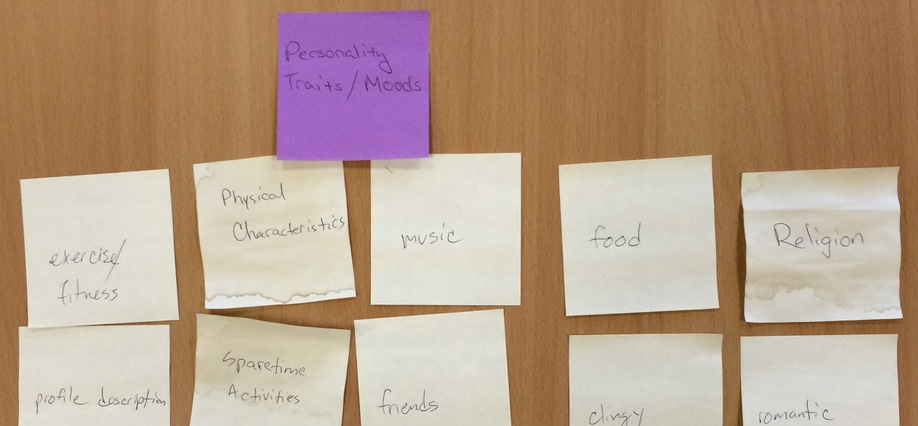 Personality
Traits/Moods
exercise/
fitness
Physical
Characteristics
music
food
Religion
profile description
Sparetime
Activities
friends
clingy
romantic